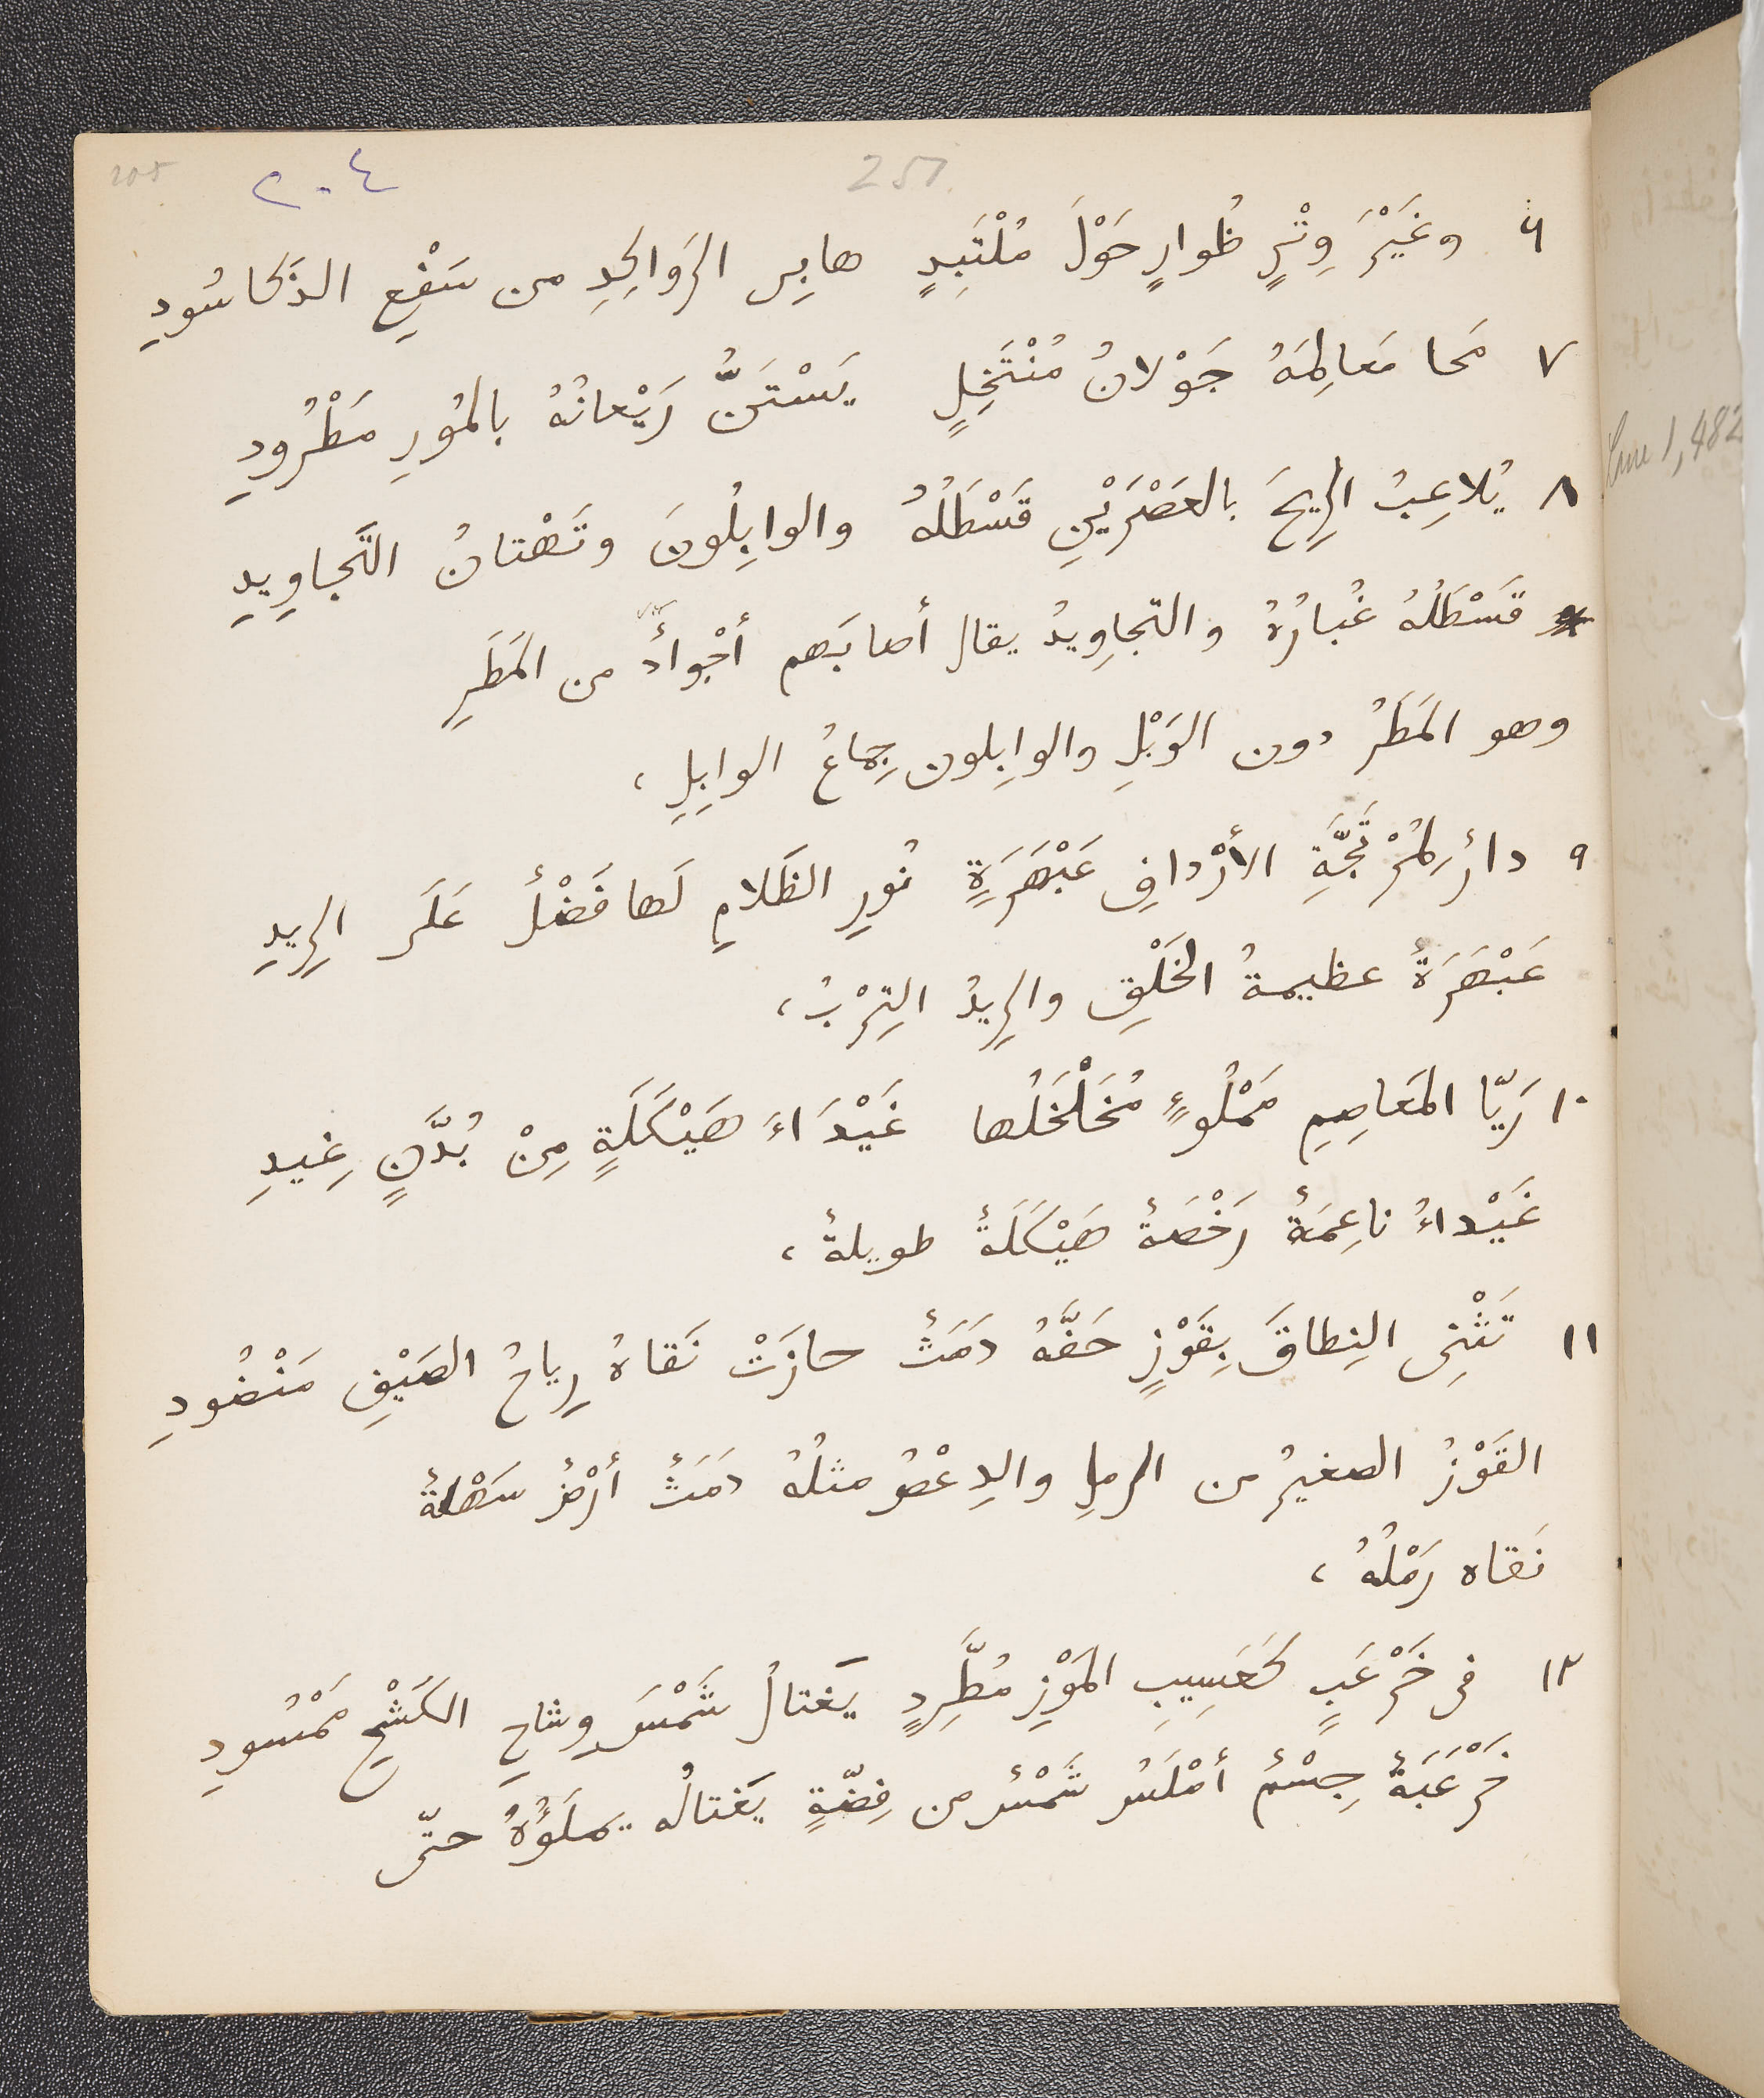 205 ٢٠٤ 251
٦ وغَيْرَ وِتْرٍ ظُوارٍ حَوْلَ مُلْتَبِدٍ هابِى الرَواكِدِ من سَفْعِ الذَكا سُودِ
٧ مَحا مَعالِمَهُ جَوْلانُ مُنْتَخِلٍ يَسْتَنُّ رَيْعانُهُ بالمُورِ مَطْرُودِ
٨ يُلاعِبُ الرِيحَ بالعَصْرَيْنِ قَسْطَلُهُ والوابِلُونَ وتَهْتانُ التَجاوِيدِ
قَسْطَلُهُ غُبارُهُ والتّجاوِيدُ يقال أصابَهم أجْوادٌ من المَطَرِ
وهو المَطَرُ دون الوَبْلِ والوابِلون جِماعُ الوابِلِ ،
٩ دارٌ لِمُرْتَجَّةِ الأرْدافِ عَبْهَرَةٍ نُورِ الظَلامِ لَها فَضْلٌ عَلَى الرِيدِ
عَبْهَرَةٌ عظيمةُ الخَلْقِ والرِيدُ التِرْبُ ،
١٠ رَيّا المَعاصِمِ مَمْلُوءٍ مُخَلْخَلُها غَيْدَاءَ هَيْكَلَةٍ مِنْ بُدَّنٍ غِيدِ
غَيْداءُ ناعِمَةٌ رَخْصَةٌ هَيْكَلَةٌ طويلةٌ ،
١١ تَثْنِى النِطاقَ بِقَوْزٍ حَفَّهُ دَمَثٌ حازَتْ نَقاهُ رِياحُ الصَيْفِ مَنْضُودِ
القَوْزُ الصغيرُ من الرملِ والدِعْصُ مثلُهُ دَمَثٌ أرْضٌ سَهْلَةٌ
نَقاه رَمْلُهُ ،
١٢ فى خَرْعَبٍ كَعَسِيبِ المَوْزِ مُطَّرِدٍ يَغتالُ شَمْسَ وِشاحِ الكَشْحِ مَمْسُودِ
خَرْعَبَةٌ جِسْمٌ أمْلَسُ شَمْسٌ من فِضّةٍ يَغتالُه يملَؤُهُ حتّى